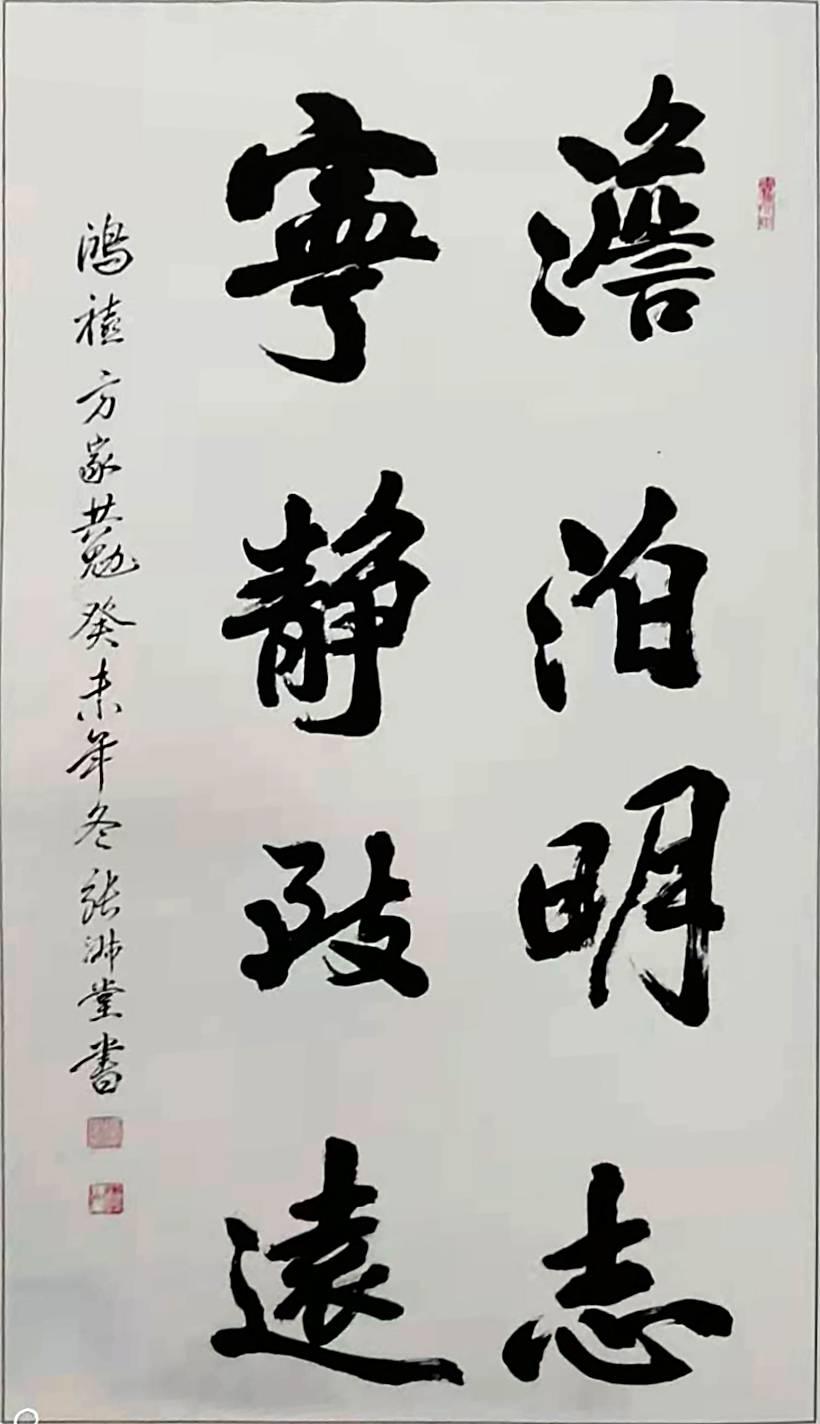 澹泊明志
寧静致遠
鴻禧方家共勉癸未年冬张沛堂書